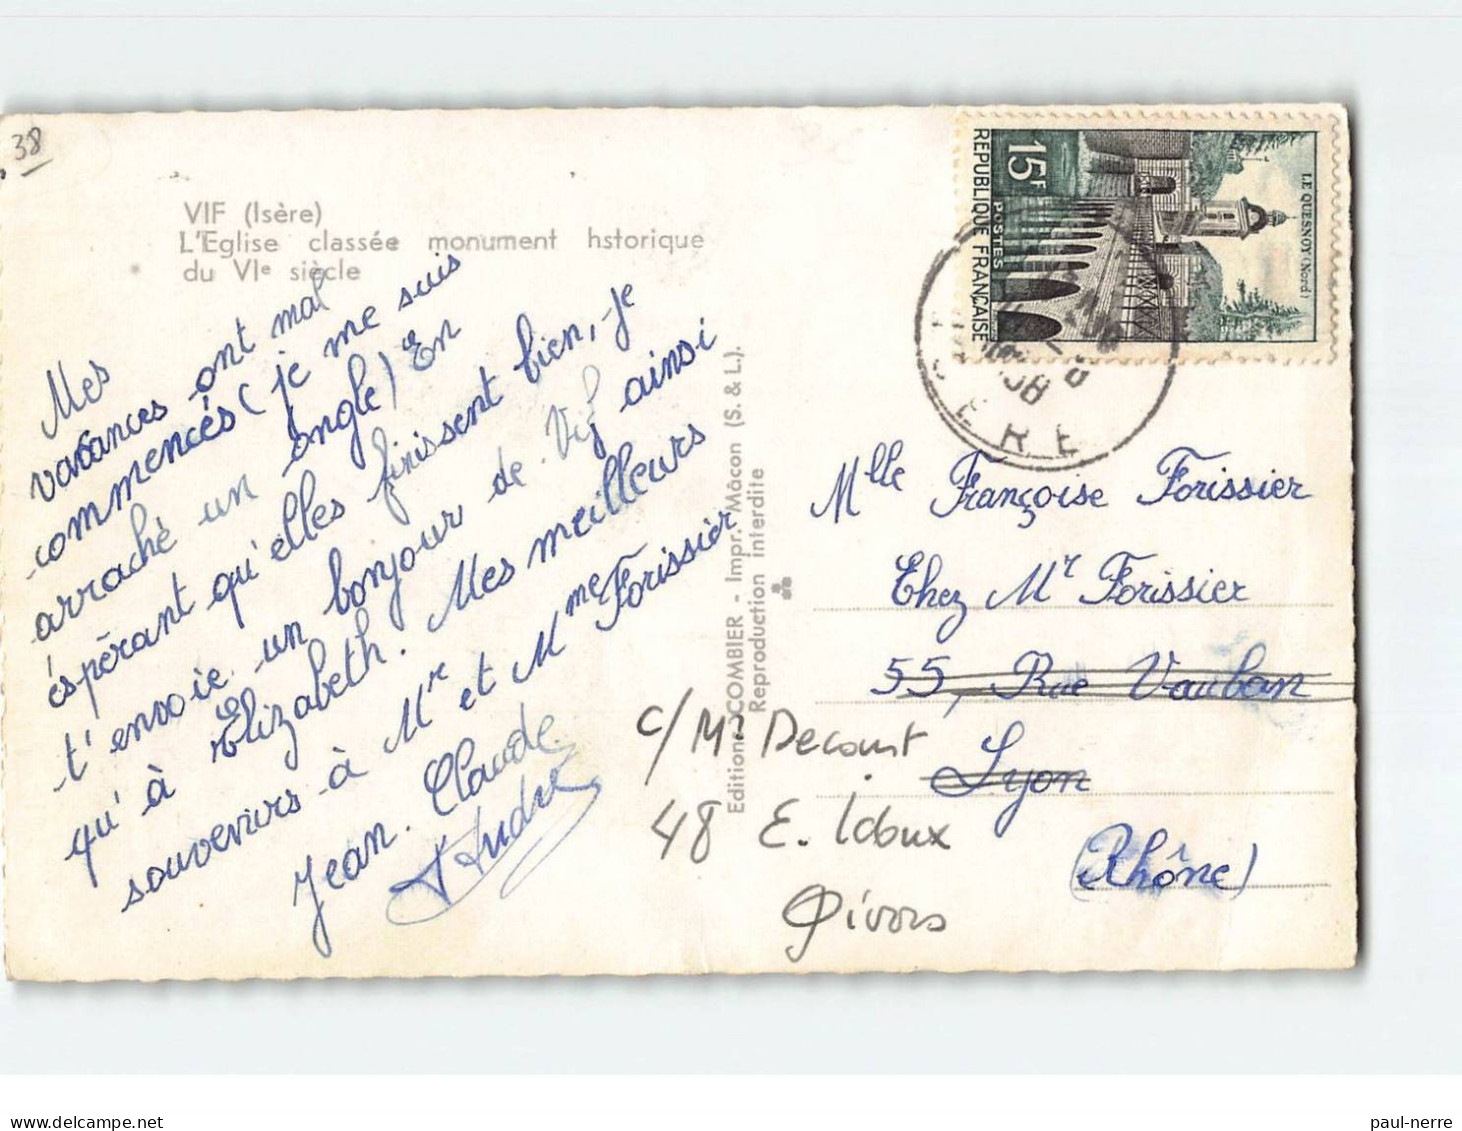 38
VIF (Isère)
L'Eglise classée monument hstorique
du VIe siècle
Mes
vacances ont mal
commencés (je me suis
arraché un ongle) En
éspérant qu'elles finissent bien, je
t'envoie un bonjour de Vif ainsi
qu'à Elizabeth. Mes meilleurs
souvenirs à Mr et Mme Forissier
Jean. Claude
André
Editions COMBIER - Impr. Mâcon (S. & L.).
Reproduction interdite
15F
POSTES
REPUBLIQUE FRANÇAISE
LE QUESNOY (Nord)
ERE
Mlle Françoise Forissier
Chez Mr Forissier
55, Rue Vauban
Lyon
(Rhône)
c/ Mr Decourt
48 E. Idoux
Givors
paul-nerre